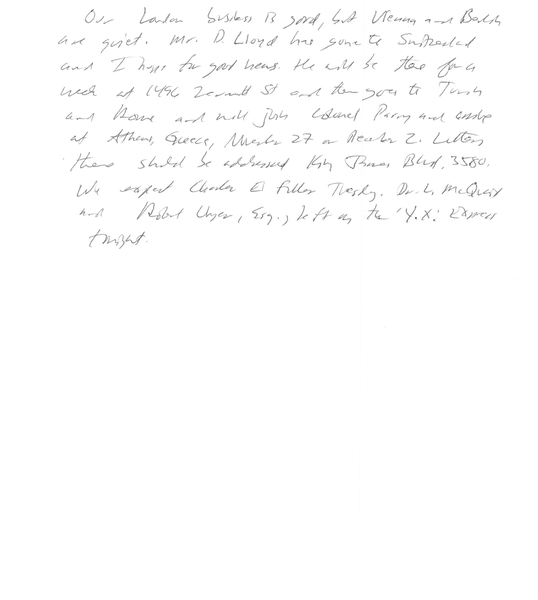 Our London business is good, but Vienna and Berlin
are quiet. Mr. D. Lloyd has gone to Switzerland
and I hope for good news. He will be there for a
week at 1496 Zermott St and then goes to Turin
and Rome and will join Colonel Parry and arrive
at Athens, Greece, November 27 or December 2. Letters
there should be addressed King James Blvd, 3580.
We expect Charles E Fuller Tuesday. Dr. L. McQuaid
and Robert Unger, Esq., left on the 'Y.X.' Express
tonight.